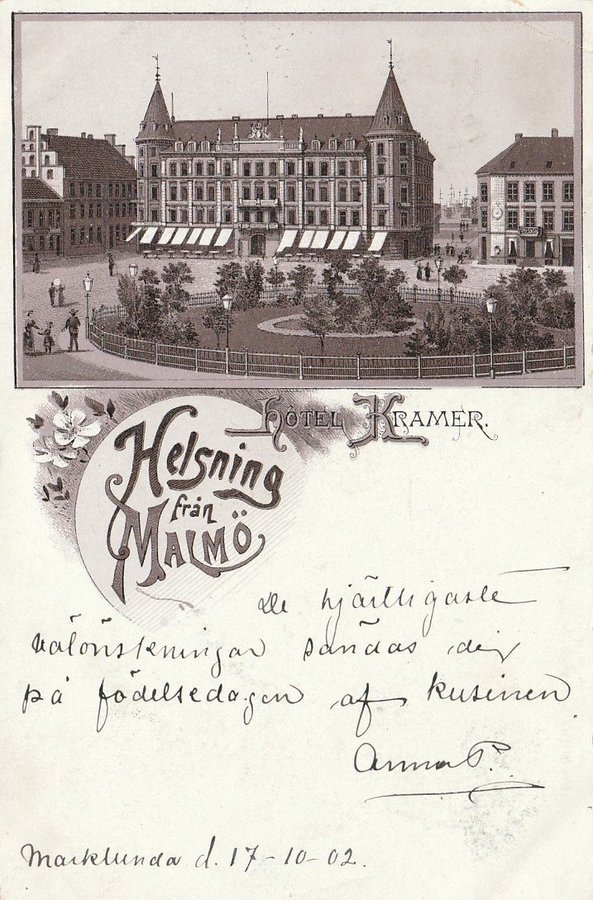 HOTEL KRAMER.
Helsning
från
MALMÖ
De hjärtligaste
välönskningar sändas dig
på födelsedagen af kusinen
Anna P.
Marklunda d. 17-10-02.